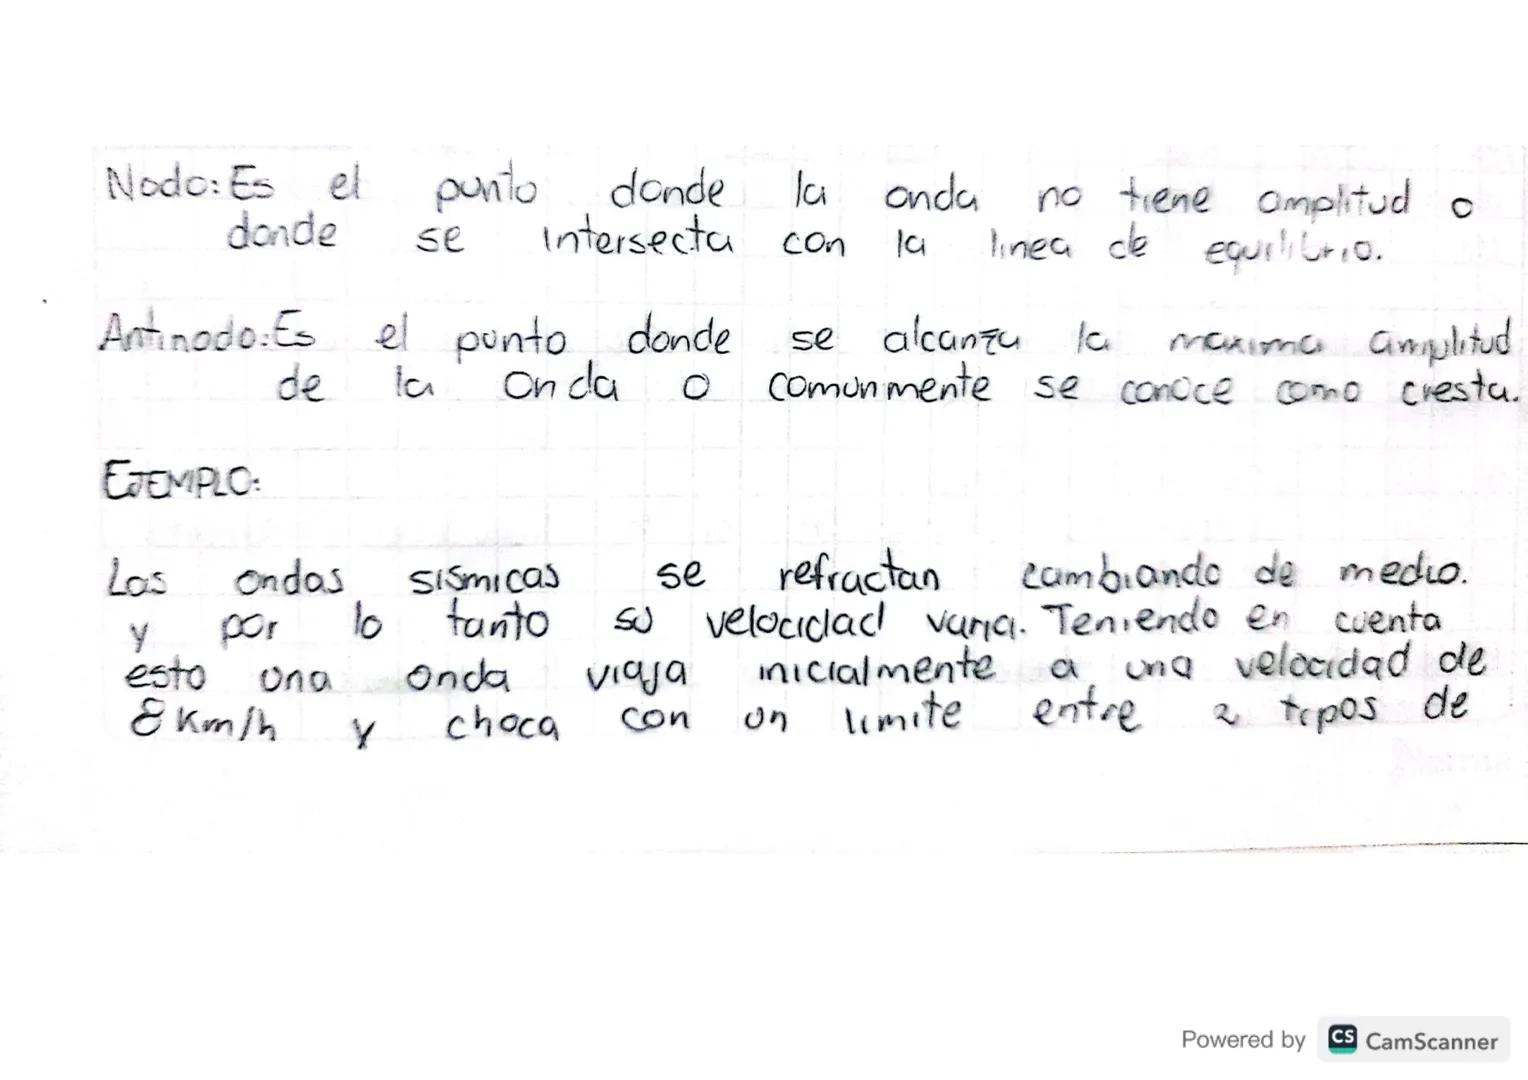 Nodo: Es el punto donde la onda no tiene amplitud o
donde se intersecta con la linea de equilibrio.
Antinodo: Es el punto donde se alcanza la maxima amplitud
de la onda o comunmente se conoce como cresta.
EJEMPLO:
Las ondas sismicas se refractan cambiando de medio.
y por lo tanto su velocidad varia. Teniendo en cuenta
esto una onda viaja inicialmente a una velocidad de
8 Km/h y choca con un limite entre 2 tipos de
Powered by CS CamScanner